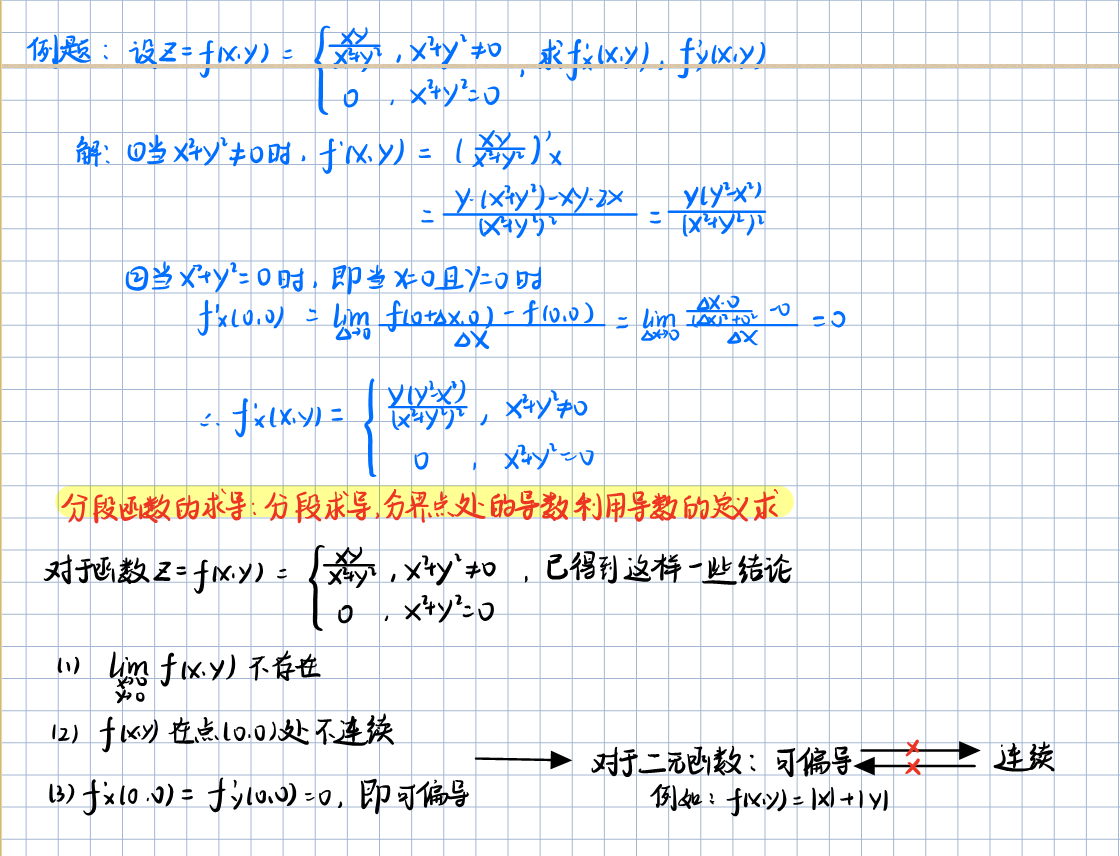 例题：设Z=f(x,y)={xy/(x²+y²), x²+y²≠0; 0, x²+y²=0, 求f'x(x,y), f'y(x,y)
解: ①当x²+y²≠0时, f'(x,y) = (xy/(x²+y²))'x
= (y·(x²+y²)-xy·2x)/(x²+y²)² = y(y²-x²)/(x²+y²)²
②当x²+y²=0时, 即当x=0且y=0时
f'x(0,0) = lim Δ→0 (f(0+Δx,0)-f(0,0))/Δx = lim Δx→0 (Δx·0/((Δx)²+0²)-0)/Δx = 0
∴ f'x(x,y) = {y(y²-x²)/(x²+y²)², x²+y²≠0; 0, x²+y²=0
分段函数的求导: 分段求导, 分界点处的导数利用导数的定义求
对于函数Z=f(x,y)={xy/(x²+y²), x²+y²≠0; 0, x²+y²=0, 已得到这样一些结论
(1) lim x→0 y→0 f(x,y) 不存在
(2) f(x,y) 在点(0,0)处不连续
对于二元函数: 可偏导 × × 连续
(3) f'x(0,0) = f'y(0,0) = 0, 即可偏导
例如: f(x,y)=|x|+|y|